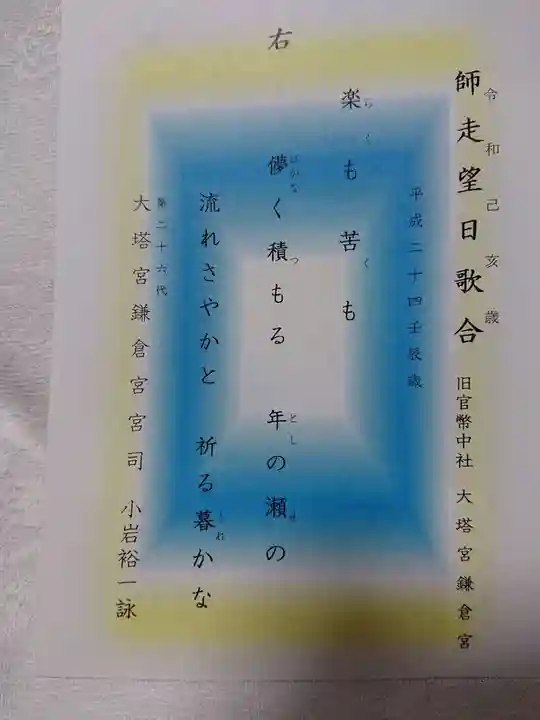 師走望日歌合 旧官幣中社 大塔宮鎌倉宮
令和己亥歳
平成二十四壬辰歳
右
楽も 苦も
らく く
儚く積もる 年の瀬の
はかな つ とし せ
流れさやかと 祈る暮かな
くれ
第二十六代
大塔宮鎌倉宮宮司 小岩裕一詠